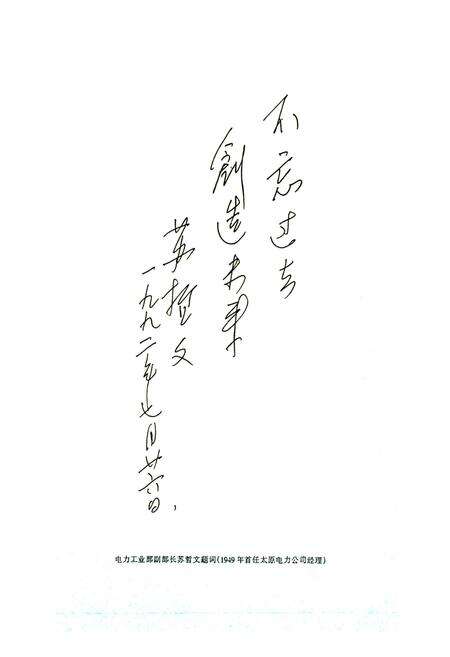 不忘过去
創造未来
苏哲文
一九九二年七月廿六日
电力工业部副部长苏哲文题词(1949年首任太原电力公司经理)